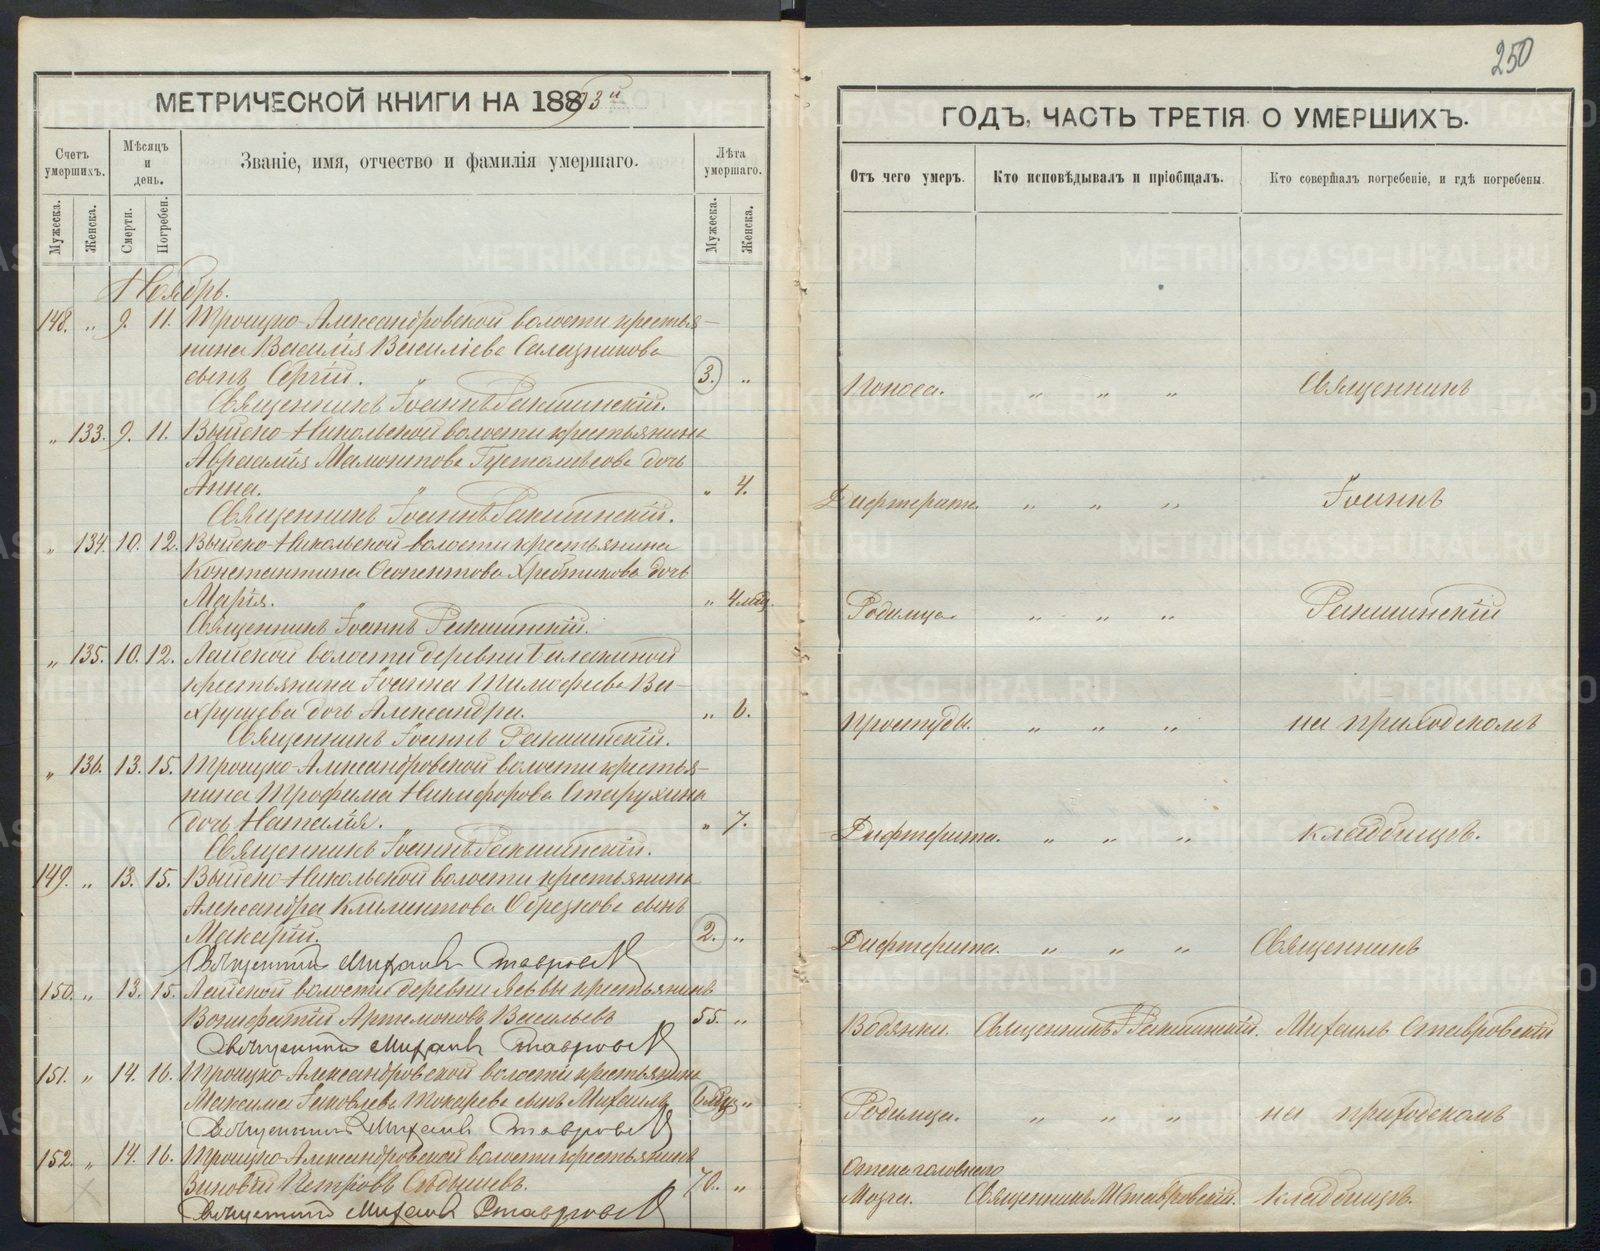 250
МЕТРИЧЕСКОЙ КНИГИ НА 1893й
ГОДЪ, ЧАСТЬ ТРЕТІЯ О УМЕРШИХЪ.
Счетъ умершихъ.
Мѣсяцъ и день.
Званіе, имя, отчество и фамилія умершаго.
Лѣта умершаго.
Отъ чего умеръ.
Кто исповѣдывалъ и пріобщалъ.
Кто совершалъ погребеніе, и гдѣ погребены.
Мужеска.
Женска.
Смерти.
Погребен.
Мужеска.
Женска.
Ноябрь.
148. „ 9. 11. Троицко-Александровской волости крестья-
нина Василія Василіева
сынъ Сергій. 3. „ Поноса. „ „ „ Священникъ
Священникъ Іоаннъ
„ 133. 9. 11. Выйско-Никольской волости крестьянина
Авраамія Мамонтова дочь
Анна. „ 4. Дифтерита. „ „ „ Іоаннъ
Священникъ Іоаннъ
„ 134. 10. 12. Выйско-Никольской волости крестьянина
Константина дочь
Марія. „ 4 мѣс. Родимца. „ „ „
Священникъ Іоаннъ
„ 135. 10. 12. Лайской волости деревни
крестьянина Іоанна Тимофеева Ва-
хрушева дочь Александра. „ 6. Простуды. „ „ „ на приходскомъ
Священникъ Іоаннъ
„ 136. 13. 15. Троицко-Александровской волости крестья-
нина Трофима Никифорова Старухина
дочь Наталія. „ 7. Дифтерита. „ „ „ кладбищѣ.
Священникъ Іоаннъ
149. „ 13. 15. Выйско-Никольской волости крестьянина
Александра Климентова Обрезкова сынъ
Макарій. 2. „ Дифтерита. „ „ „ Священникъ
Священникъ Михаилъ Ставровскій
150. „ 13. 15. Лайской волости деревни крестьянинъ
Вонифатій Артемоновъ Васильевъ 55. „ Водянки. Священникъ Михаилъ Ставровскій
Священникъ Михаилъ Ставровскій
151. „ 14. 16. Троицко-Александровской волости крестьянина
Максима Іаковлева Токарева сынъ Михаилъ 6 мѣс. „ Родимца. „ „ „ на приходскомъ
Священникъ Михаилъ Ставровскій
152. „ 14. 16. Троицко-Александровской волости крестьянинъ Отека головнаго
Зиновій Петровъ 70. „ Мозга. Священникъ М. Ставровскій. кладбищѣ.
Священникъ Михаилъ Ставровскій
METRIKI.GASO-URAL.RU